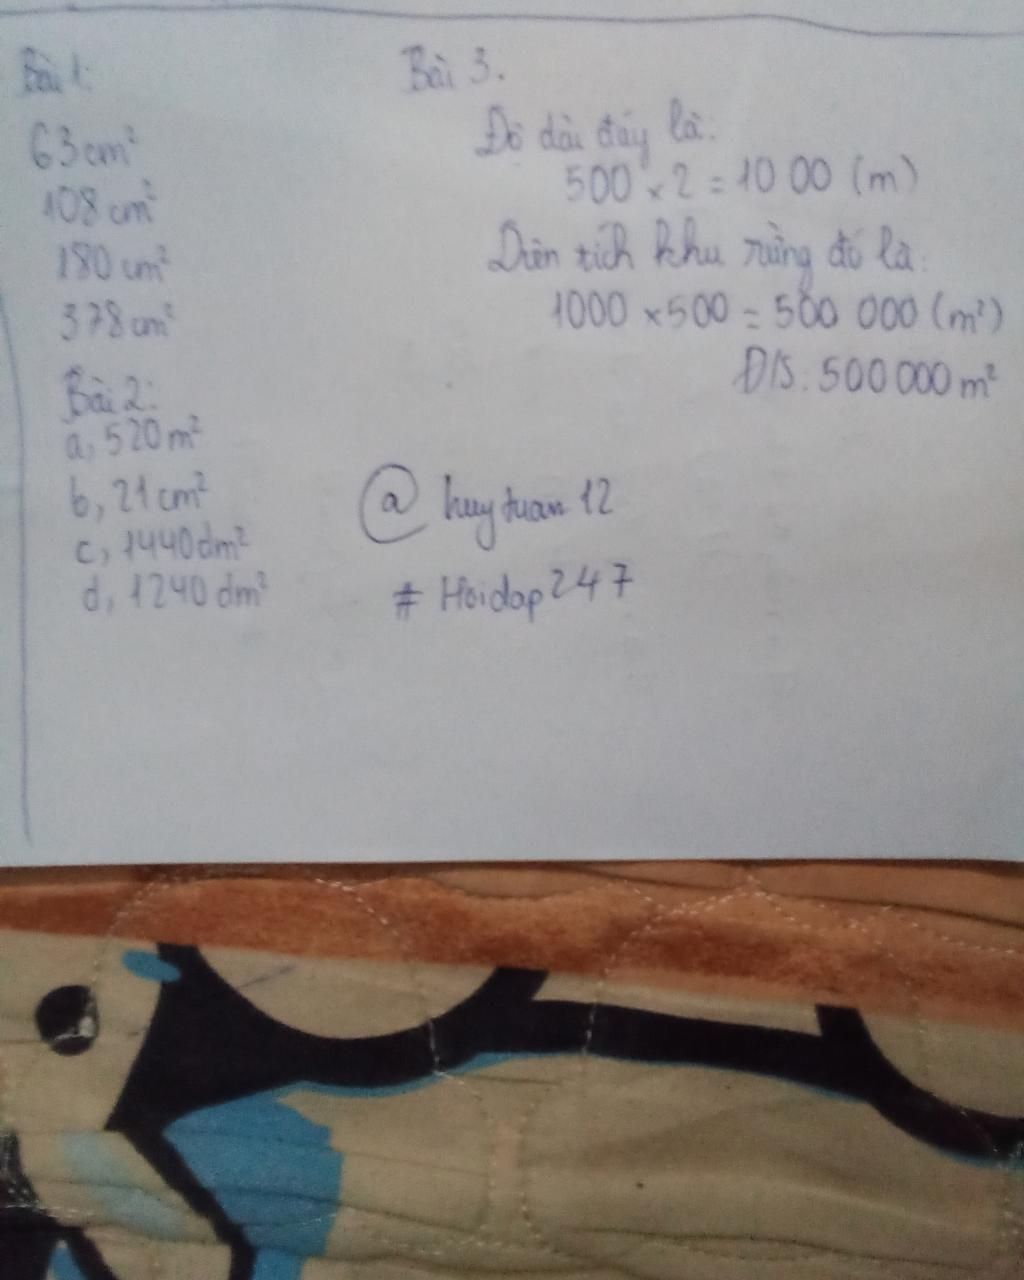 Bài 1:
63 cm²
108 cm²
180 cm²
378 cm²
Bài 2:
a, 520 m²
b, 21 cm²
c, 1440 dm²
d, 1240 dm²
Bài 3.
Độ dài đáy là:
500 × 2 = 1000 (m)
Diện tích khu rừng đó là:
1000 × 500 = 500 000 (m²)
Đ/S: 500 000 m²
@ huytuan12
# Hoidap247